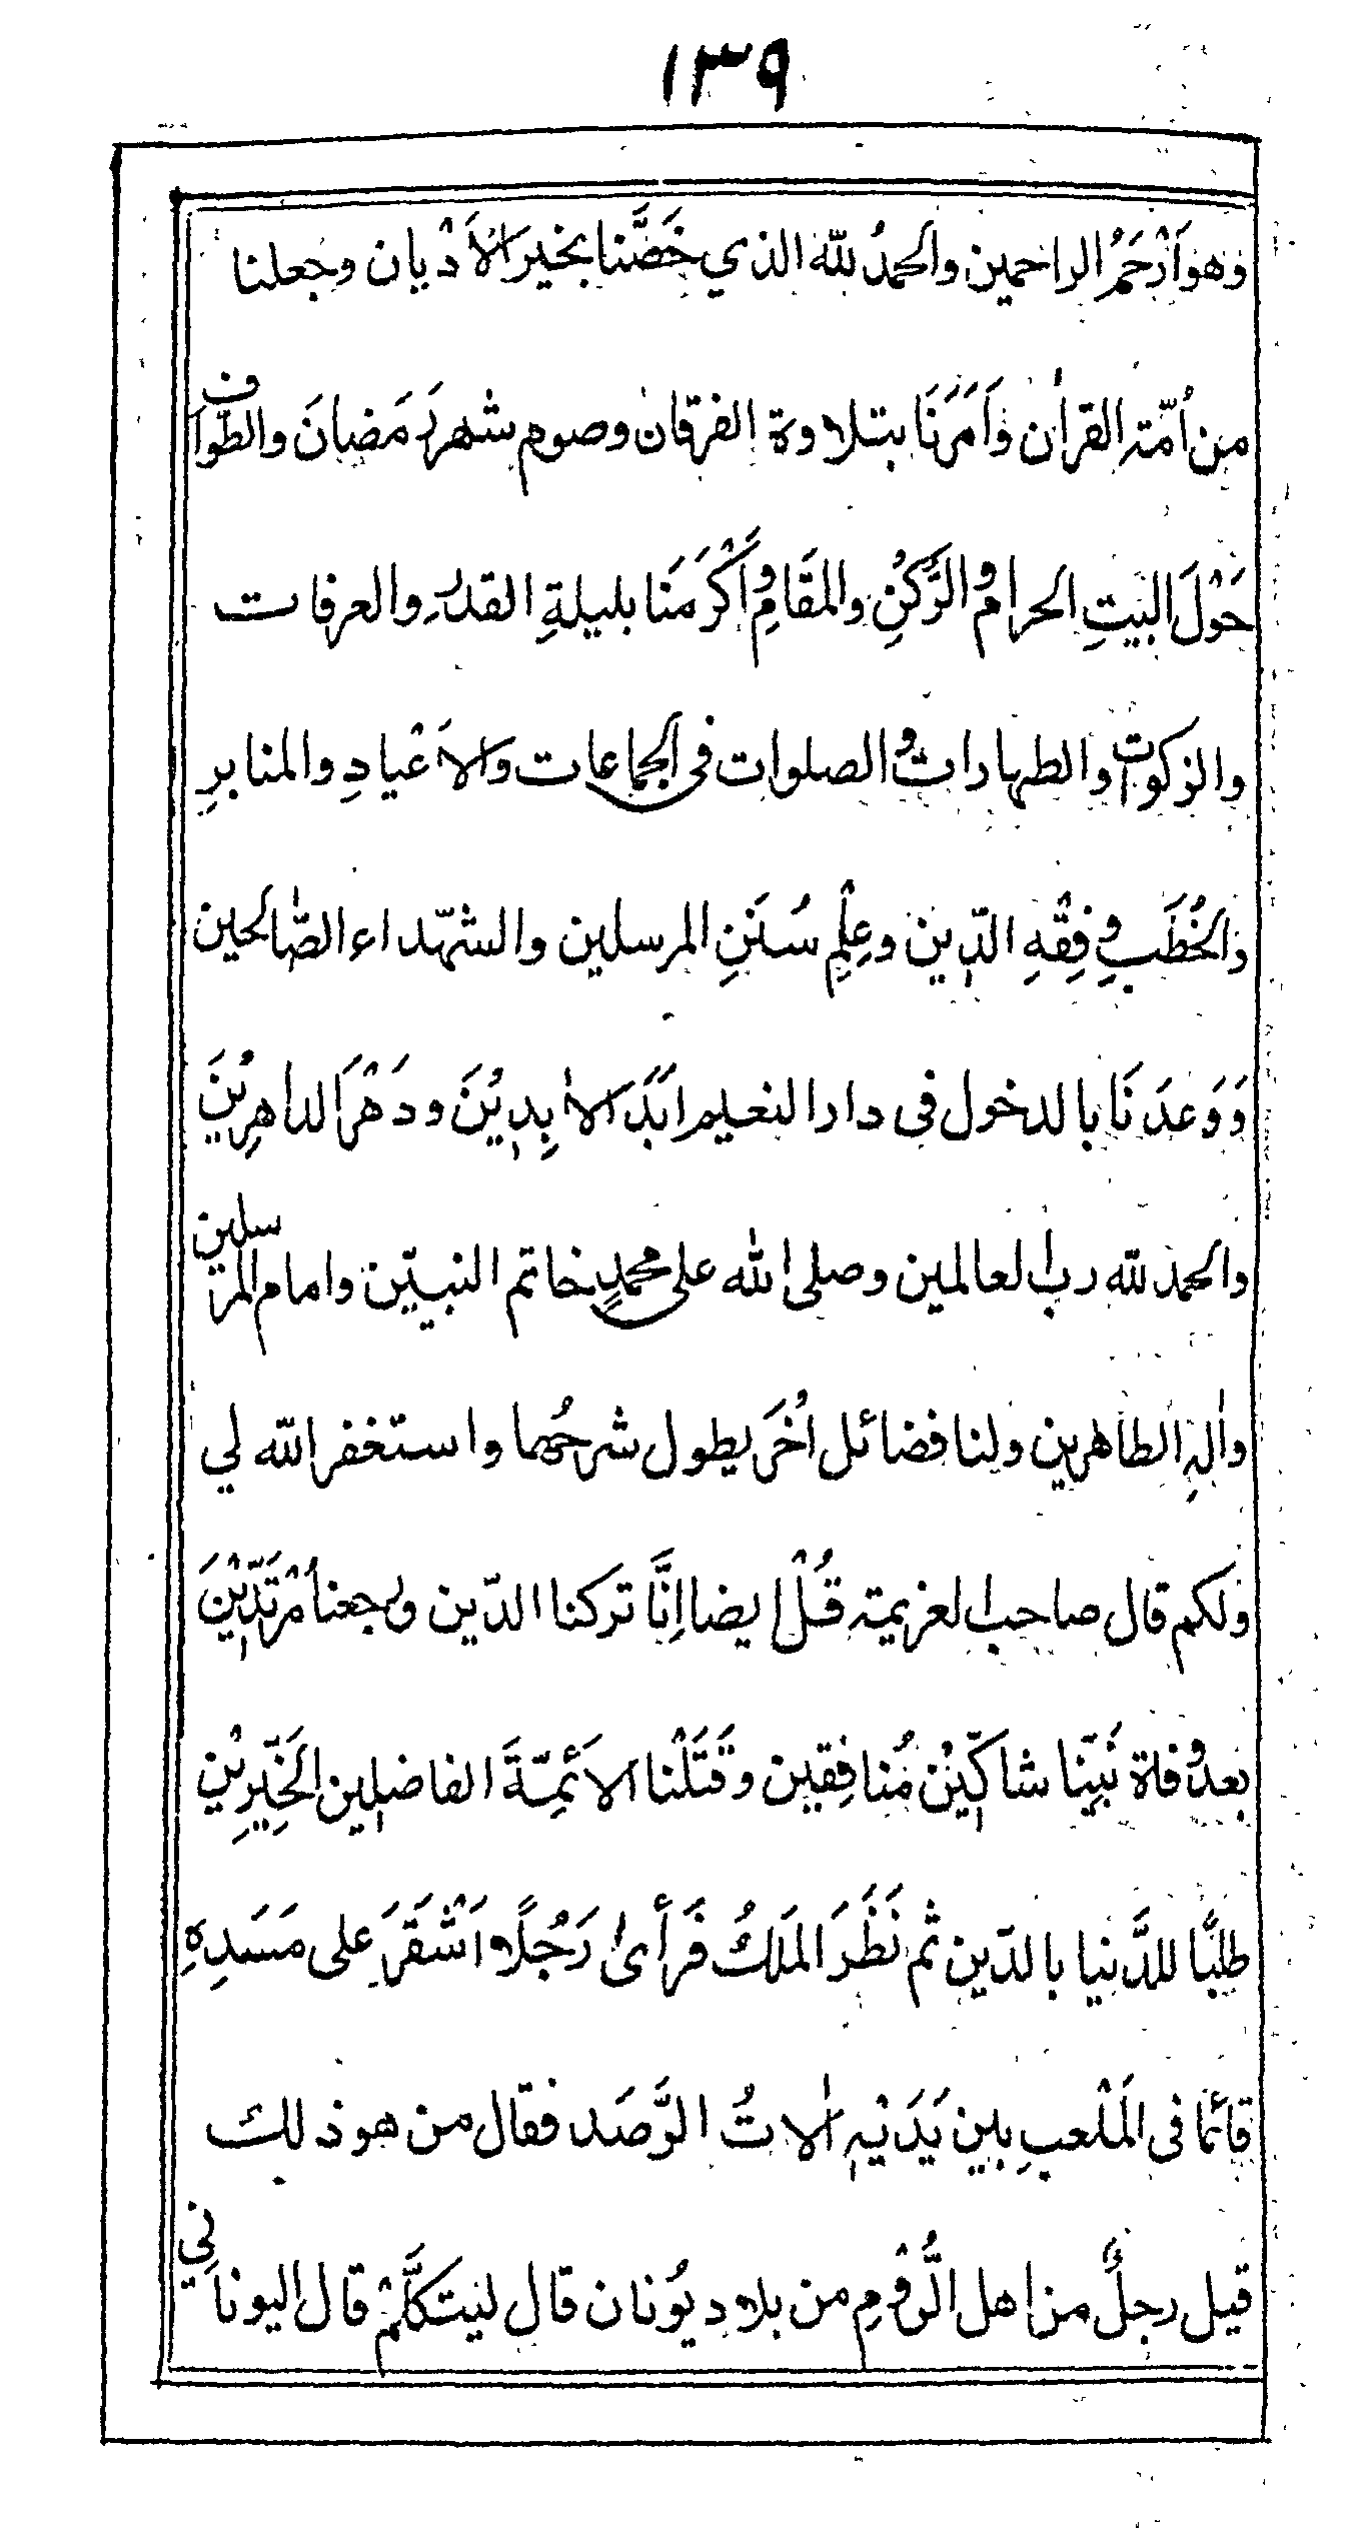 ١٣٩
وهو اَرْحَمُ الراحمين والحمدُ للّه الذي خَصَّنا بخير الاَدْيان وجعلنا
من اُمّته القراٰن وَاَمَرَنَا بتلاوة الفرقان وصوم شهر رَمَضانَ والطّواف
حَوْلَ البَيتِ الحرام والرُّكنِ والمقَامِ وَاَكْرَمَنا بليلةِ القدرِ والعرفات
والزكوات والطهارات والصلوات فى الجماعات والاَعْيادِ والمنابرِ
والخُطَبِ وفِقْهِ الدّين وعِلْمِ سُنَنِ المرسلين والشهّداء الصّالحين
وَوَعدَنَا بالدخول فى دار النعيم ابَدَ الاٰبِدِيْنَ ودَهْرَ الداهِرِيْنَ
والحمد للّه رب العالمين وصلى اللّٰه على محمدٍ خاتم النبيّن وامام المرسلين
واٰلهِ الطاهرين ولنا فضائل اُخَر يطول شرحُها واستغفر اللّه لي
ولكم قال صاحب العزيمة قُلْ ايضا اِنَّا تركنا الدّين ورجعنا مُرْتَدِّيْنَ
بعد وفاة نَبِيِّنا شاكِّيْنَ مُنافِقين وقَتَلْنا الاَئمِّةَ الفاضلين الخَيِّرِيْن
طلبًا للدُّنيا بالدّين ثم نَظَرَ المَلكُ فَرَأىٰ رَجُلًا اَشْقَرَ على مَسَدِهِ
قائمًا فى المَلْعبِ بين يَدَيْهِ اٰلاتُ الرَّصَد فقال من هو ذلك
قيل رجلٌ من اهل الرُّوْمِ من بلاد يُوْنان قال ليتكلَّمْ قال اليونانِي